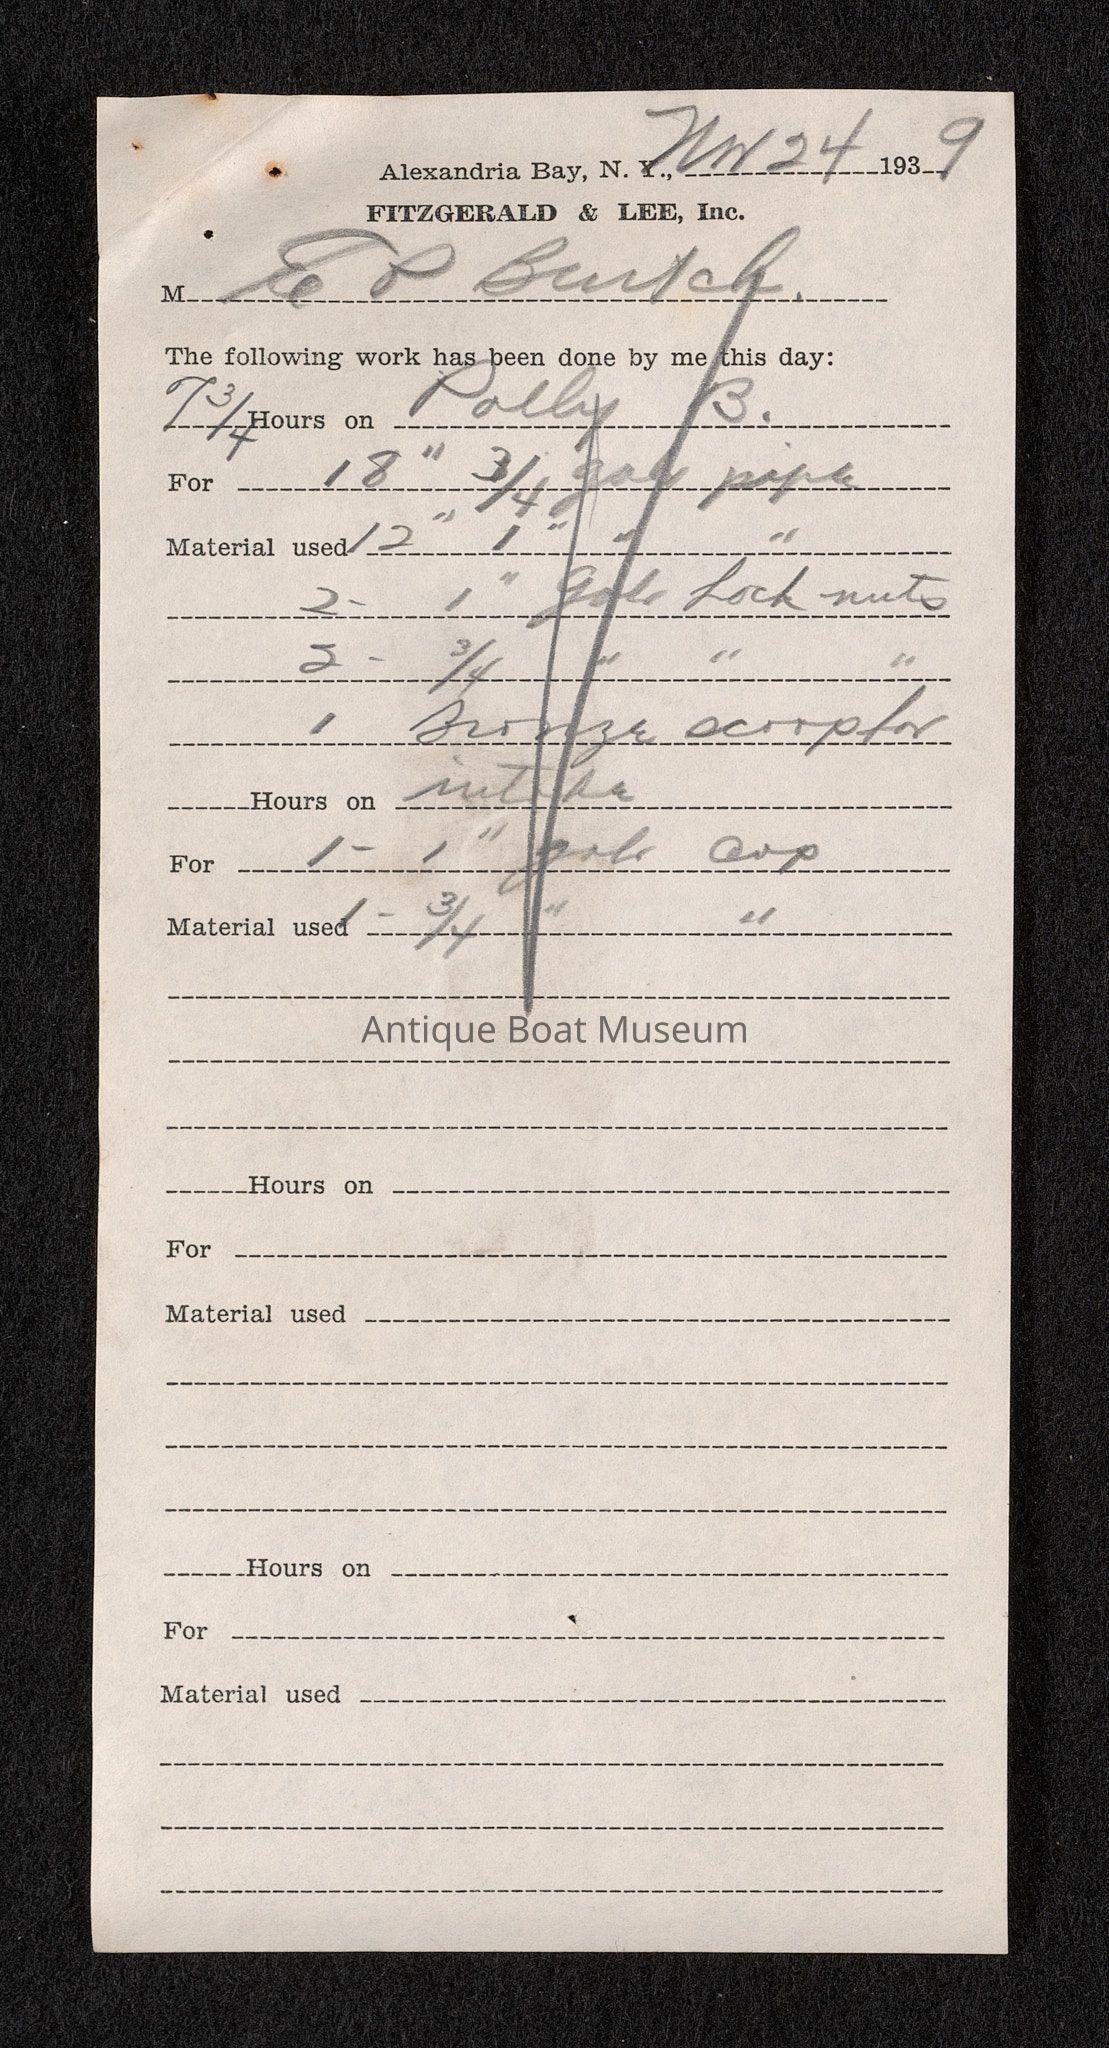 Alexandria Bay, N. Y., Nov 24 1939
FITZGERALD & LEE, Inc.
M E P Burtch.
The following work has been done by me this day:
7 3/4 Hours on Polly B.
For 18" 3/4 galv pipe
Material used 12" 1" " "
2- 1" Galv Lock nuts
2- 3/4 " " "
1 Bronze scoop for
Hours on intake
For 1- 1" galv cap
Material used 1- 3/4 " "
Antique Boat Museum
Hours on
For
Material used
Hours on
For
Material used